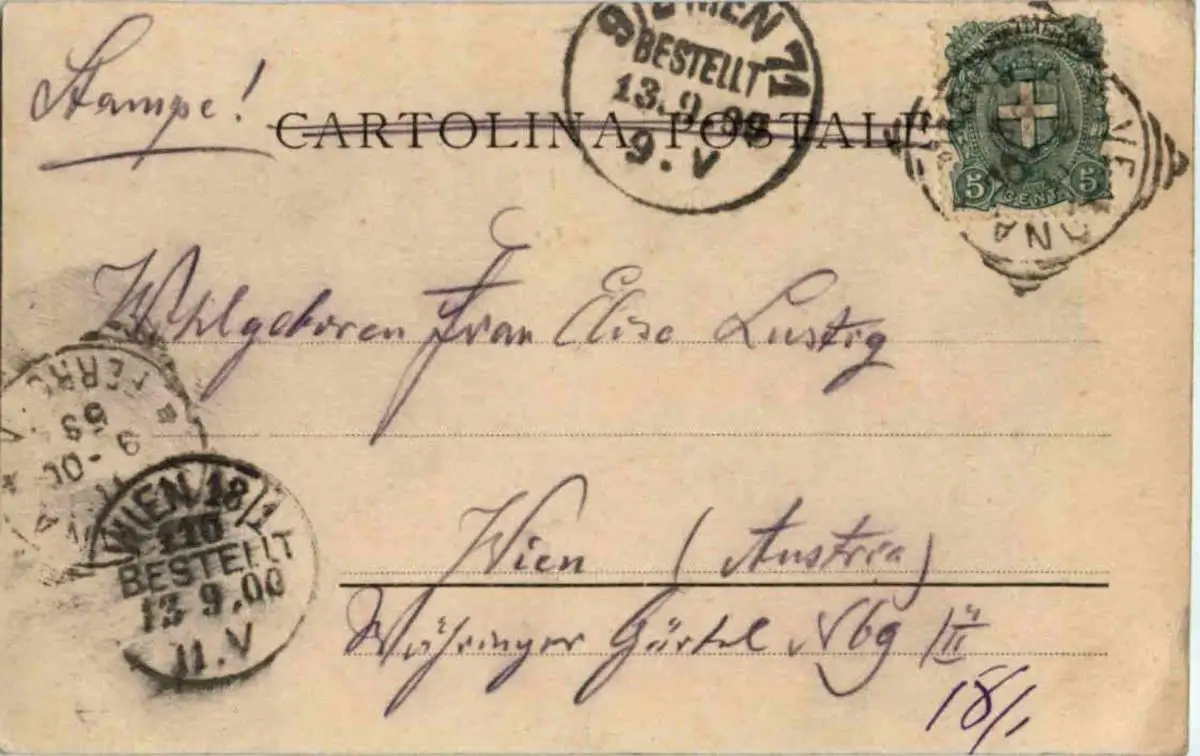 Stampe!
CARTOLINA POSTALE
WIEN 71
BESTELLT
13.9.00
9.V
5 CENT 5
Wohlgeboren Frau Elise Lustig
Wien (Austria)
Währinger Gürtel
18/1
WIEN 18/1
110
BESTELLT
13 9.00
11.V